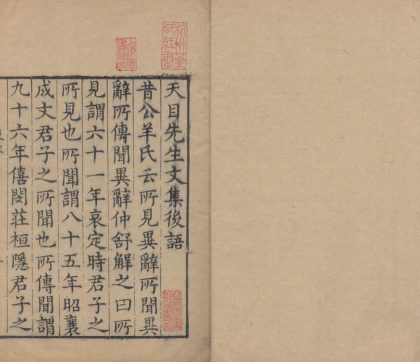 天目先生文集後語
昔公羊氏云所見異辭所聞異
辭所傳聞異辭仲舒解之曰所
見謂六十一年哀定時君子之
所見也所聞謂八十五年昭襄
成文君子之所聞也所傳聞謂
九十六年僖閔莊桓隱君子之